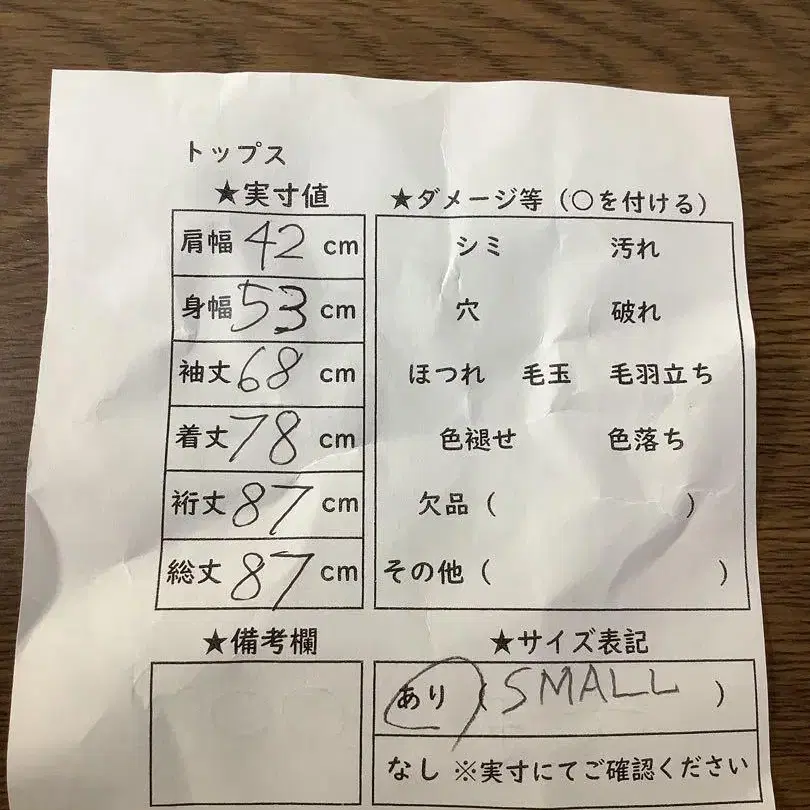 トップス
★実寸値
肩幅 42 cm
身幅 53 cm
袖丈 68 cm
着丈 78 cm
裄丈 87 cm
総丈 87 cm
★ダメージ等（○を付ける）
シミ 汚れ
穴 破れ
ほつれ 毛玉 毛羽立ち
色褪せ 色落ち
欠品（ ）
その他（ ）
★備考欄
★サイズ表記
あり（SMALL ）
なし ※実寸にてご確認ください